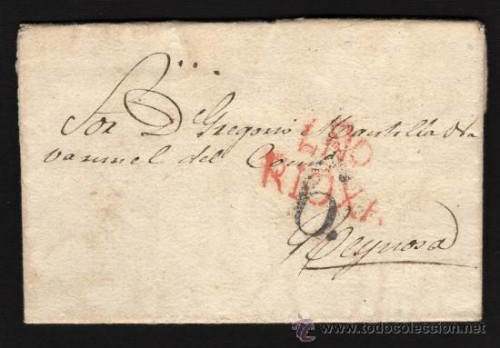 Sor D Gregorio Mantilla
del
LRO
RIOXA.
6.
Reynosa
www.todocoleccion.net